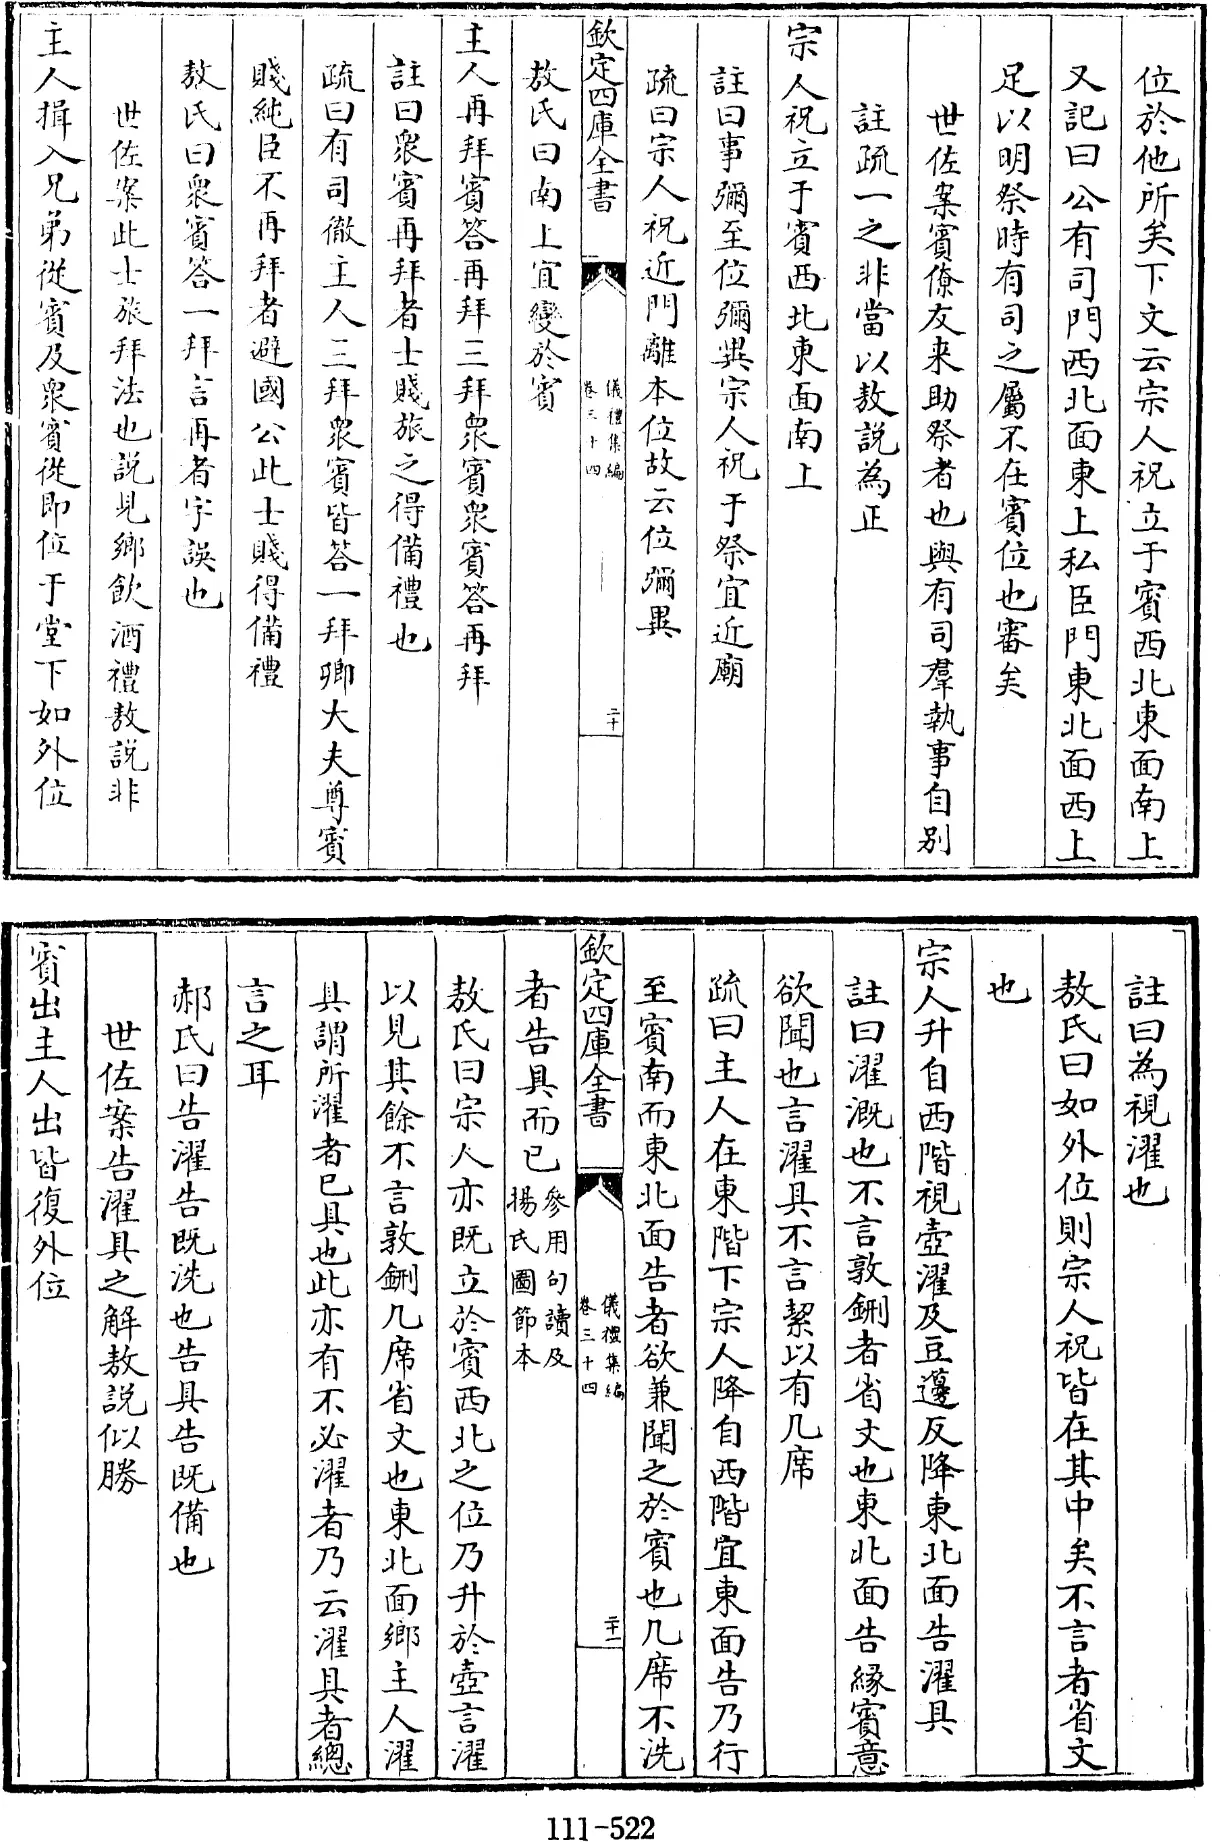 位於他所矣下文云宗人祝立于賓西北東面南上
又記曰公有司門西北面東上私臣門東北面西上
足以明祭時有司之屬不在賓位也審矣
世佐案賓僚友来助祭者也與有司羣執事自别
註疏一之非當以敖説為正
宗人祝立于賓西北東面南上
註曰事彌至位彌異宗人祝于祭宜近廟
疏曰宗人祝近門離本位故云位彌異
欽定四庫全書
儀禮集編
卷三十四
二十
敖氏曰南上宜變於賓
主人再拜賓答再拜三拜衆賓衆賓答再拜
註曰衆賓再拜者士賤旅之得備禮也
疏曰有司徹主人三拜衆賓皆答一拜卿大夫尊賓
賤純臣不再拜者避國公此士賤得備禮
敖氏曰衆賓答一拜言再者字誤也
世佐案此士旅拜法也説見鄉飲酒禮敖説非
主人揖入兄弟從賓及衆賓從即位于堂下如外位
註曰為視濯也
敖氏曰如外位則宗人祝皆在其中矣不言者省文
也
宗人升自西階視壺濯及豆籩反降東北面告濯具
註曰濯溉也不言敦鉶者省文也東北面告緣賓意
欲聞也言濯具不言絜以有几席
疏曰主人在東階下宗人降自西階宜東面告乃行
至賓南而東北面告者欲兼聞之於賓也几席不洗
欽定四庫全書
儀禮集編
卷三十四
二十一
者告具而已參用句讀及楊氏圖節本
敖氏曰宗人亦既立於賓西北之位乃升於壺言濯
以見其餘不言敦鉶几席省文也東北面鄉主人濯
具謂所濯者已具也此亦有不必濯者乃云濯具者總
言之耳
郝氏曰告濯告既洗也告具告既備也
世佐案告濯具之解敖説似勝
賓出主人出皆復外位
111-522